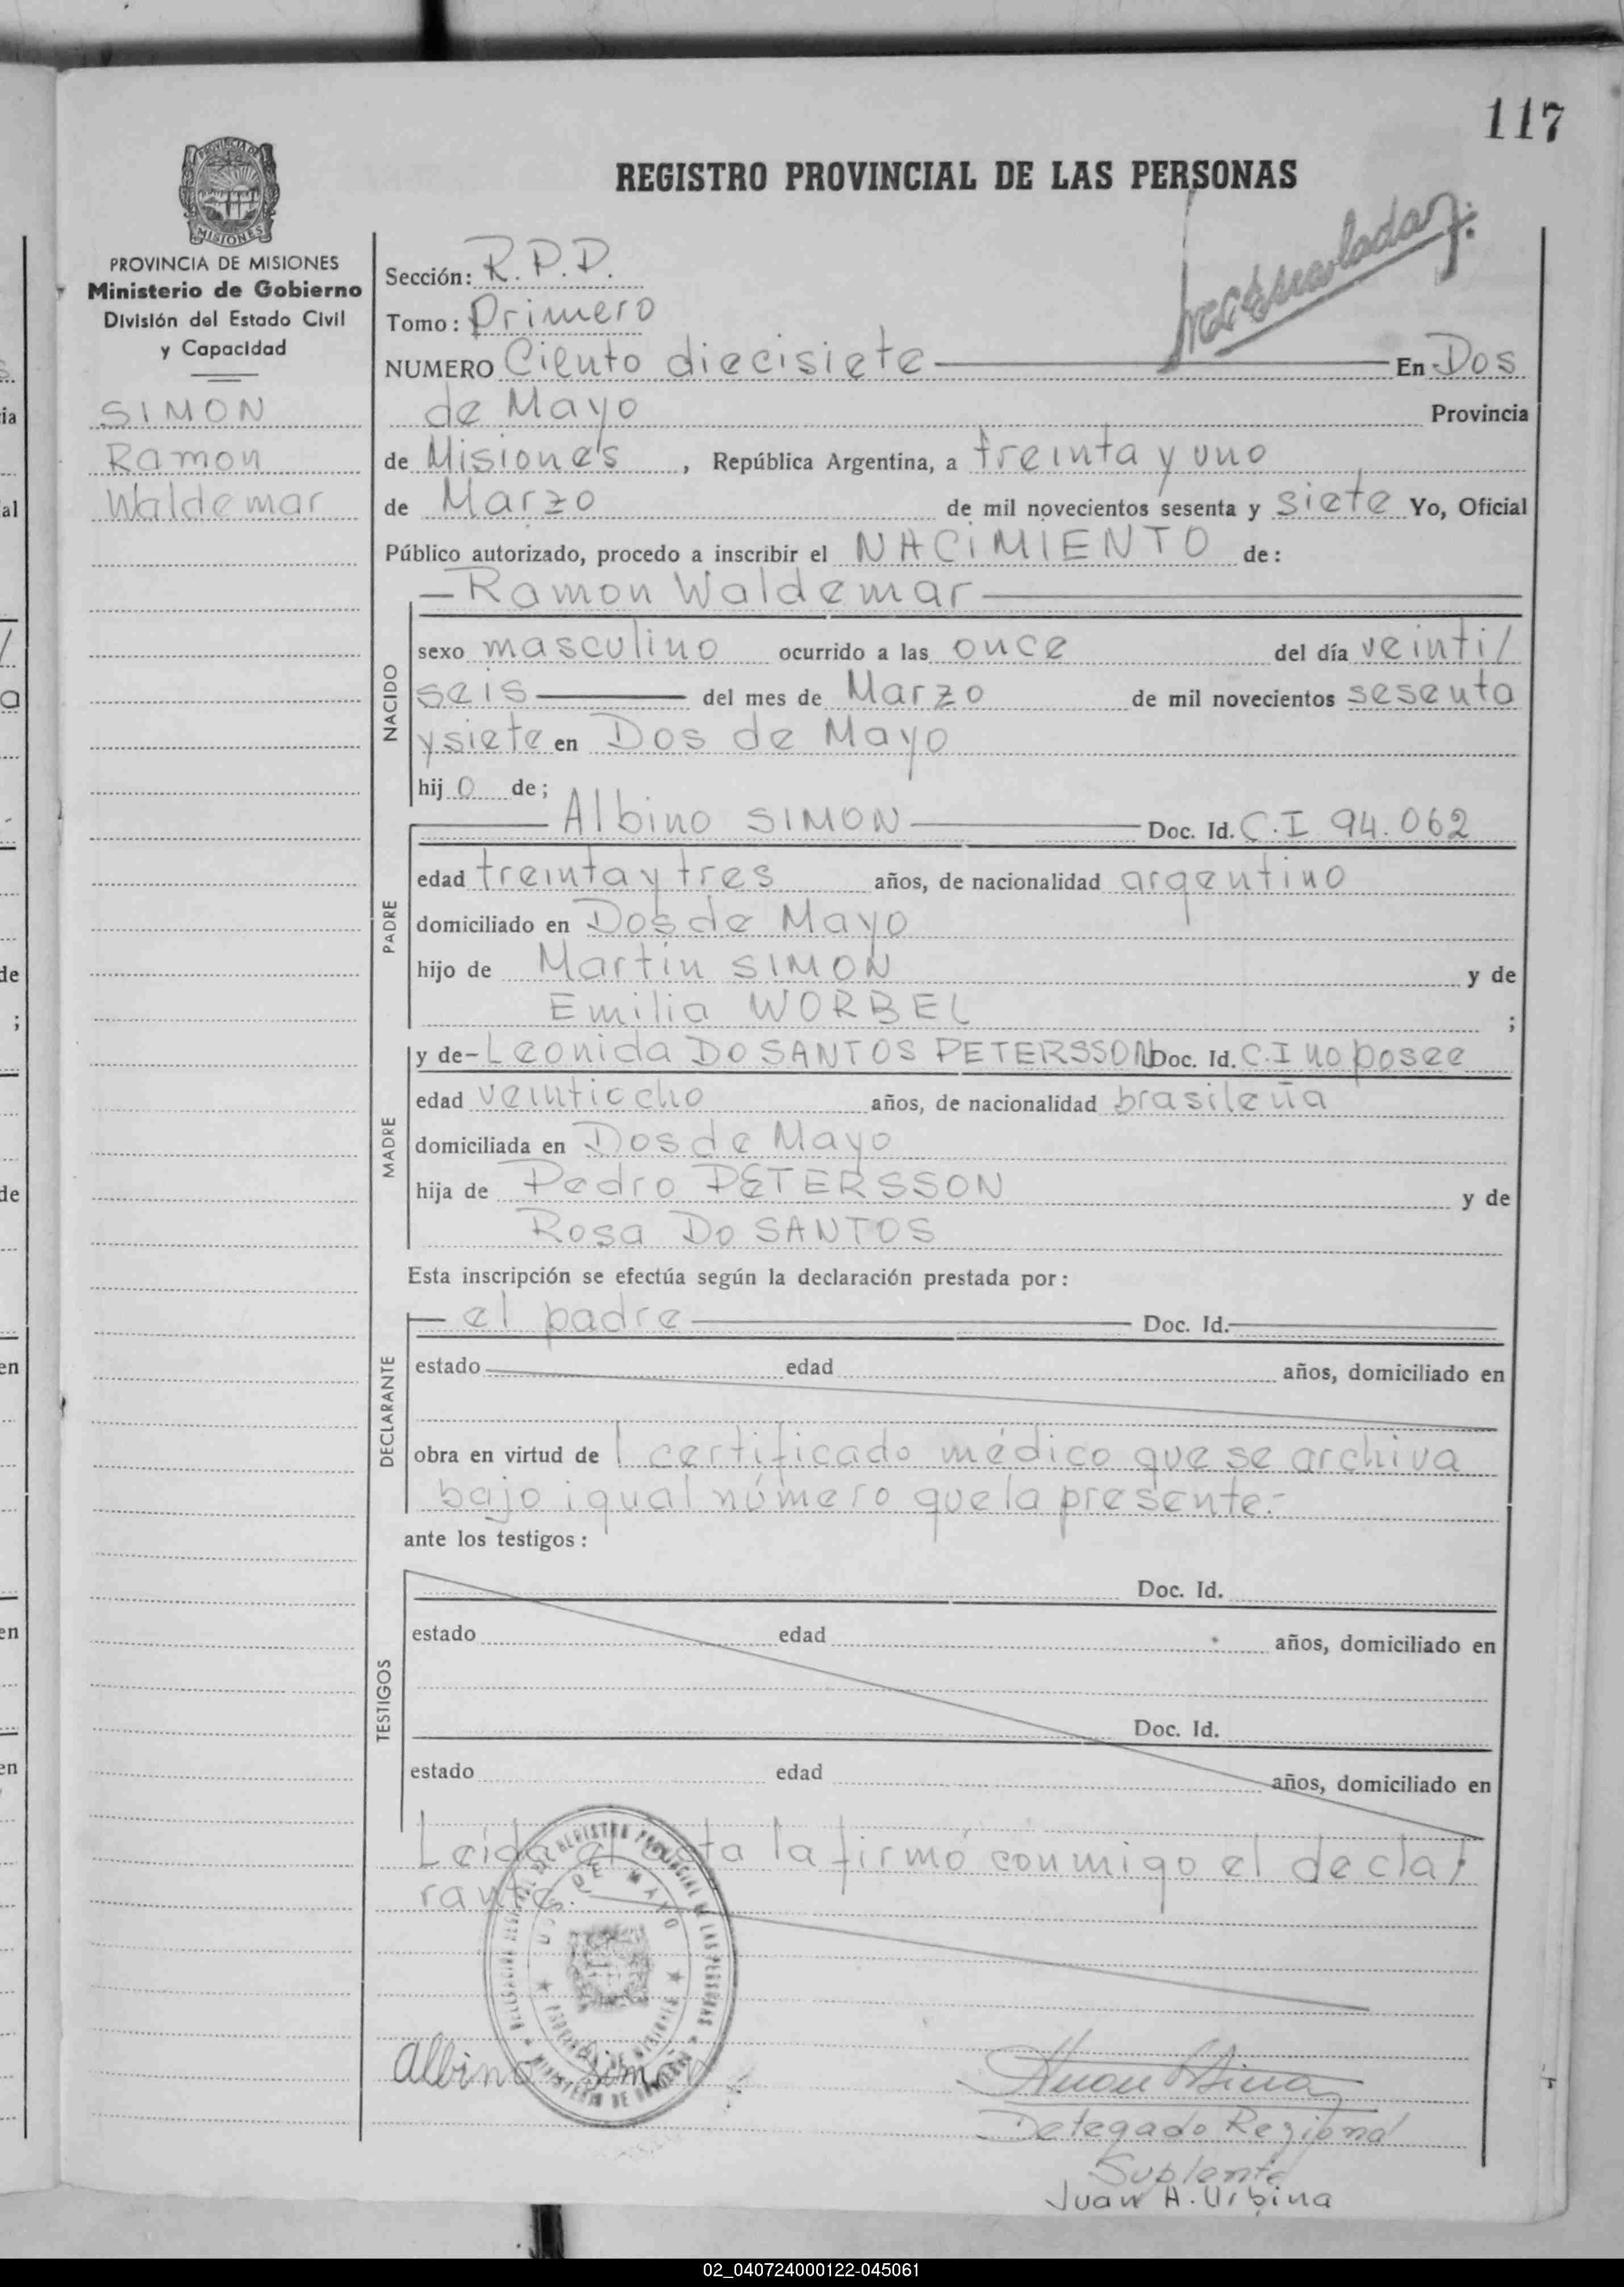 117
REGISTRO PROVINCIAL DE LAS PERSONAS
PROVINCIA DE MISIONES
Ministerio de Gobierno
División del Estado Civil
y Capacidad
SIMON
Ramon
Waldemar
Sección: R.P.D.
Tomo: Primero
NUMERO Ciento diecisiete En Dos
de Mayo Provincia
de Misiones, República Argentina, a treinta y uno
de Marzo de mil novecientos sesenta y siete Yo, Oficial
Público autorizado, procedo a inscribir el NACIMIENTO de:
Ramon Waldemar
NACIDO
sexo masculino ocurrido a las once del día veinti/
seis del mes de Marzo de mil novecientos sesenta
y siete en Dos de Mayo
hijo de;
PADRE
Albino SIMON Doc. Id. C.I 94.062
edad treinta y tres años, de nacionalidad argentino
domiciliado en Dos de Mayo
hijo de Martin SIMON y de
Emilia WORBEL ;
MADRE
y de - Leonida DO SANTOS PETERSSON Doc. Id. C.I no posee
edad veintiocho años, de nacionalidad brasileña
domiciliada en Dos de Mayo
hija de Pedro PETERSSON y de
Rosa Do SANTOS
Esta inscripción se efectúa según la declaración prestada por:
DECLARANTE
el padre Doc. Id.
estado edad años, domiciliado en
obra en virtud de l certificado médico que se archiva
bajo igual número que la presente.-
ante los testigos:
TESTIGOS
Doc. Id.
estado edad años, domiciliado en
Doc. Id.
estado edad años, domiciliado en
Leída el acta la firmó conmigo el decla/
rante.
DOS DE MAYO
PROVINCIA DE MISIONES
REGISTRO PROVINCIAL DE LAS PERSONAS
MINISTERIO DE GOBIERNO
albino Simon
Delegado Regional
Suplente
Juan A. Urbina
02_040724000122-045061